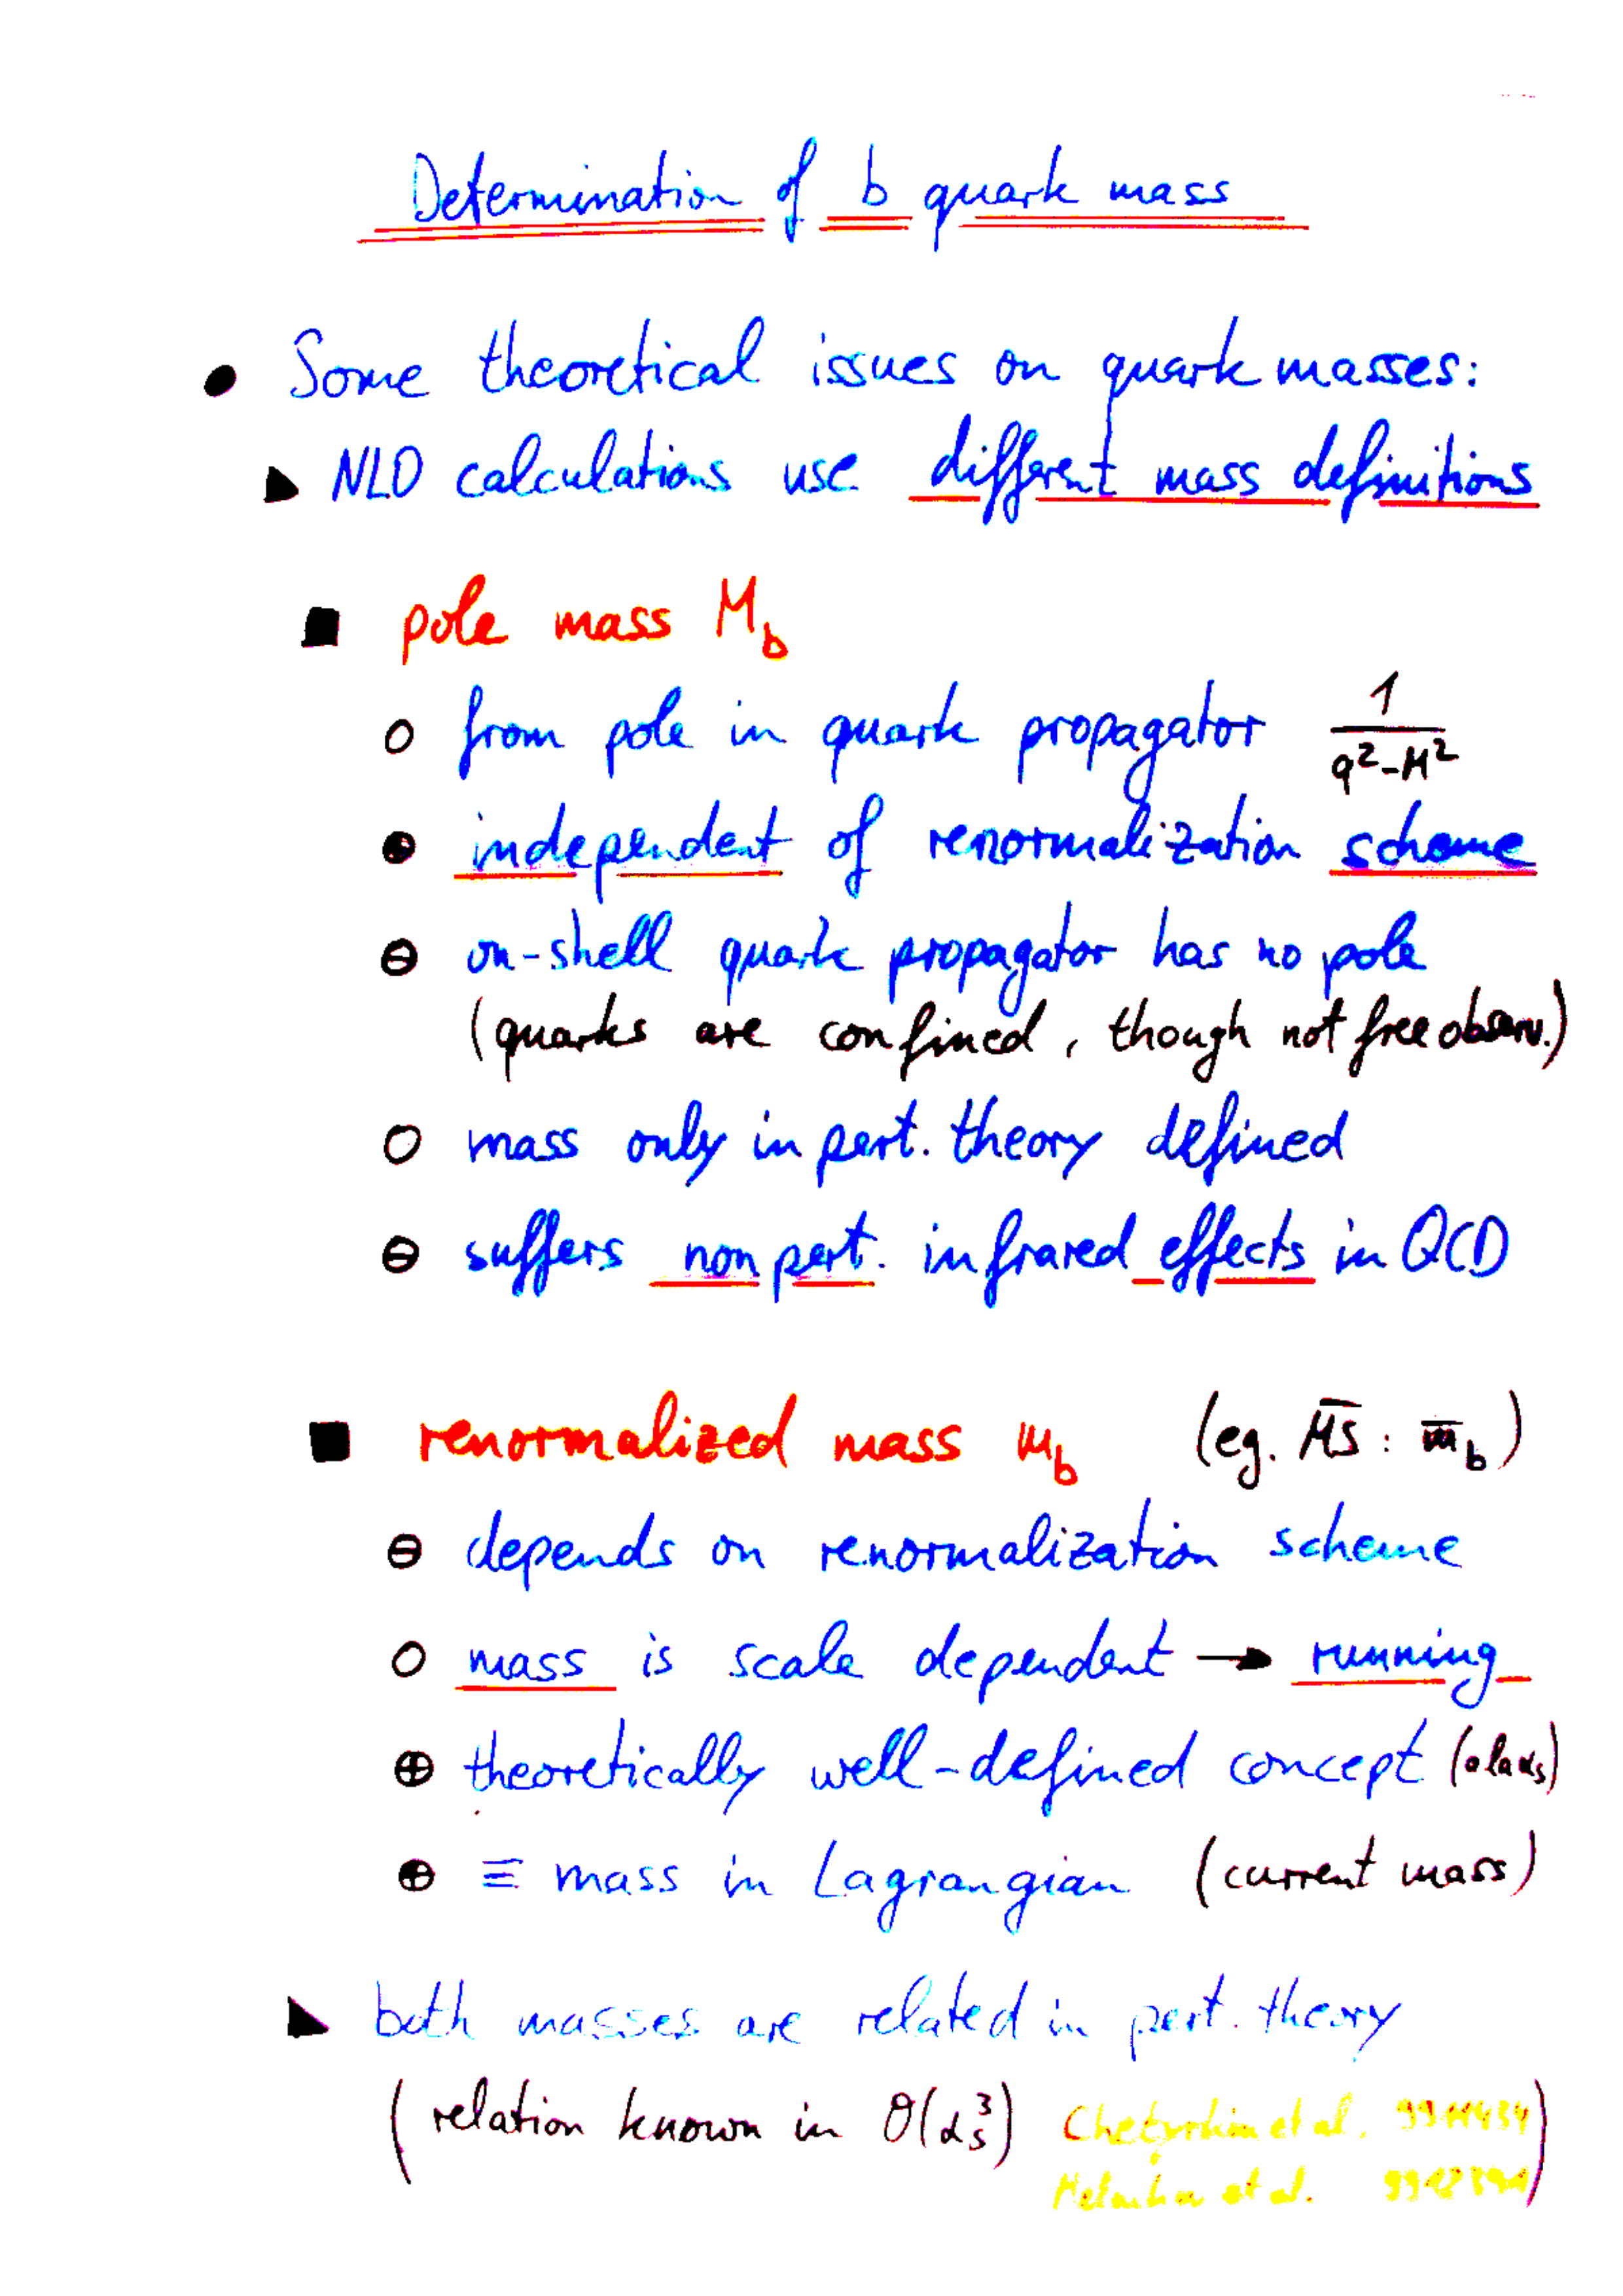 Determination of b quark mass
● Some theoretical issues on quark masses:
▶ NLO calculations use different mass definitions
■ pole mass M_b
○ from pole in quark propagator 1/(q²-M²)
⊕ independent of renormalization scheme
⊖ on-shell quark propagator has no pole
(quarks are confined, though not free observ.)
○ mass only in pert. theory defined
⊖ suffers non pert. infrared effects in QCD
■ renormalized mass m_b (eg. M̅S̅ : m̅_b)
⊖ depends on renormalization scheme
○ mass is scale dependent → running
⊕ theoretically well-defined concept (a la α_s)
⊕ ≡ mass in Lagrangian (current mass)
▶ both masses are related in pert. theory
(relation known in O(α_s³) Chetyrkin et al. 9911434
et al.)